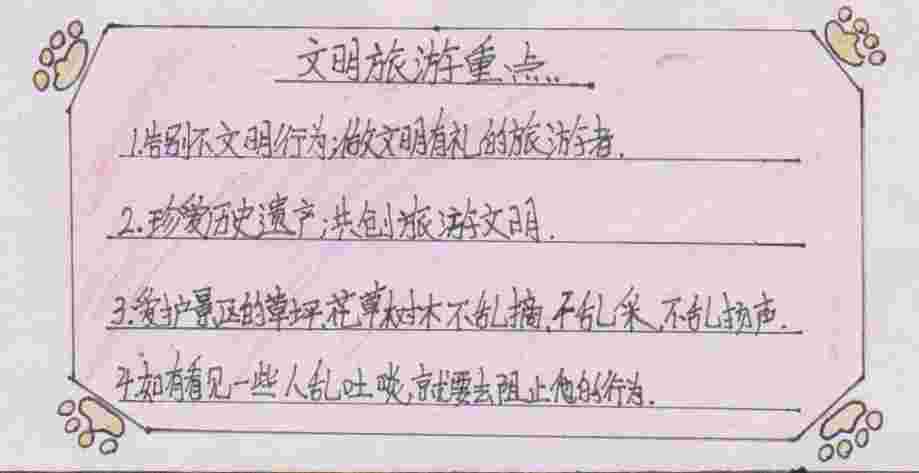 文明旅游重点..
1.告别不文明行为;做文明有礼的旅游者.
2.珍爱历史遗产;共创旅游文明.
3.爱护景区的草坪,花草树木不乱摘,不乱采,不乱扬声.
4.如有看见一些人乱吐啖,就要去阻止他的行为.